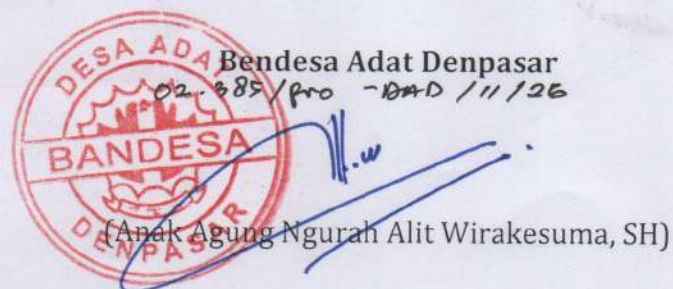 DESA ADAT
Bendesa Adat Denpasar
02.385/pro -DAD /11/26
BANDESA
DENPASAR
(Anak Agung Ngurah Alit Wirakesuma, SH)